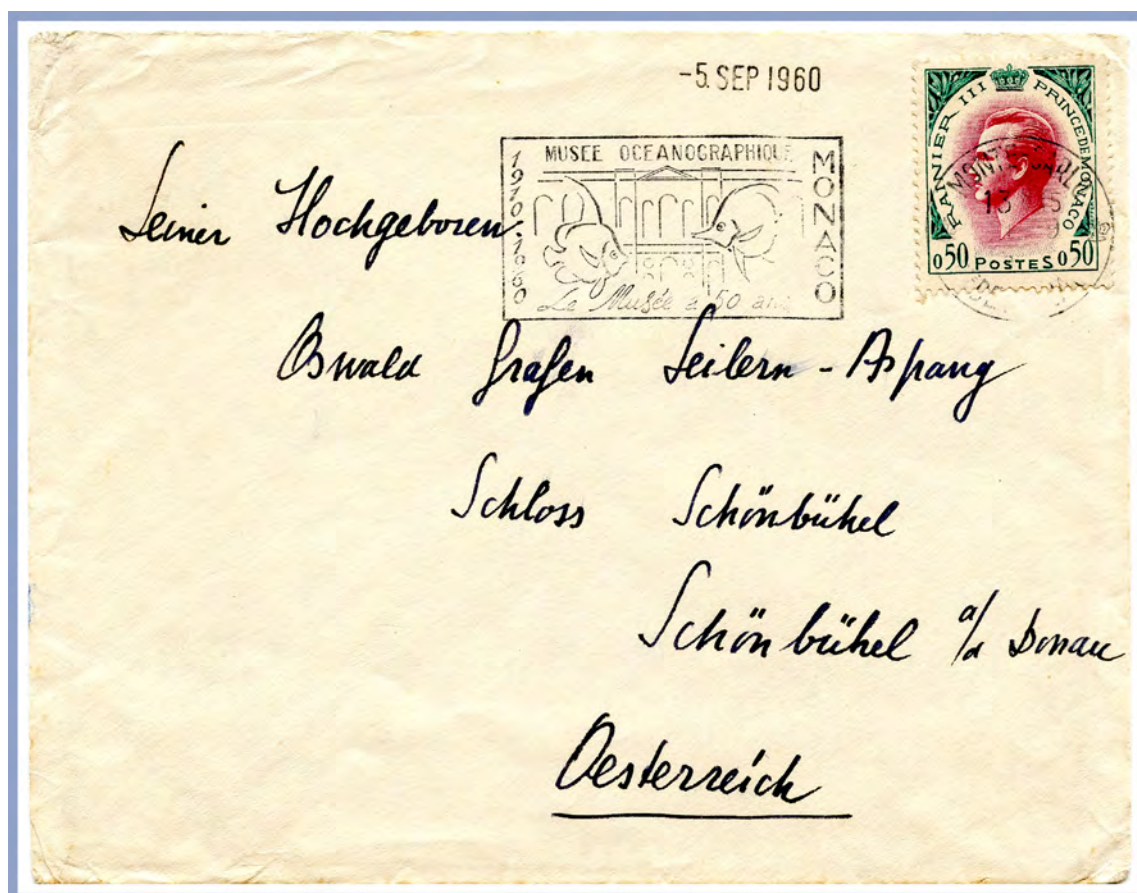 -5. SEP 1960
MUSEE OCEANOGRAPHIQUE
1910-1960
MONACO
Le Musée a 50 ans
RAINIER III PRINCE DE MONACO
MONTE-CARLO
0,50 POSTES 0,50
Seiner Hochgeboren
Oswald Grafen Seilern-Aspang
Schloss Schönbühel
Schönbühel a/d Donau
Oesterreich